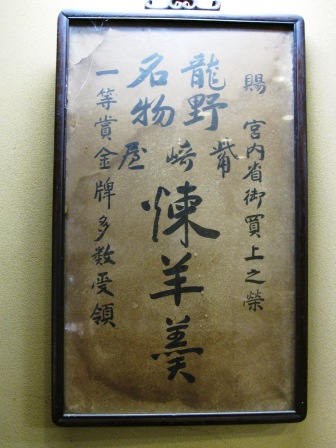 賜 宮内省御買上之榮
龍野
名物
紫崎屋
煉羊羹
一等賞金牌多数受領